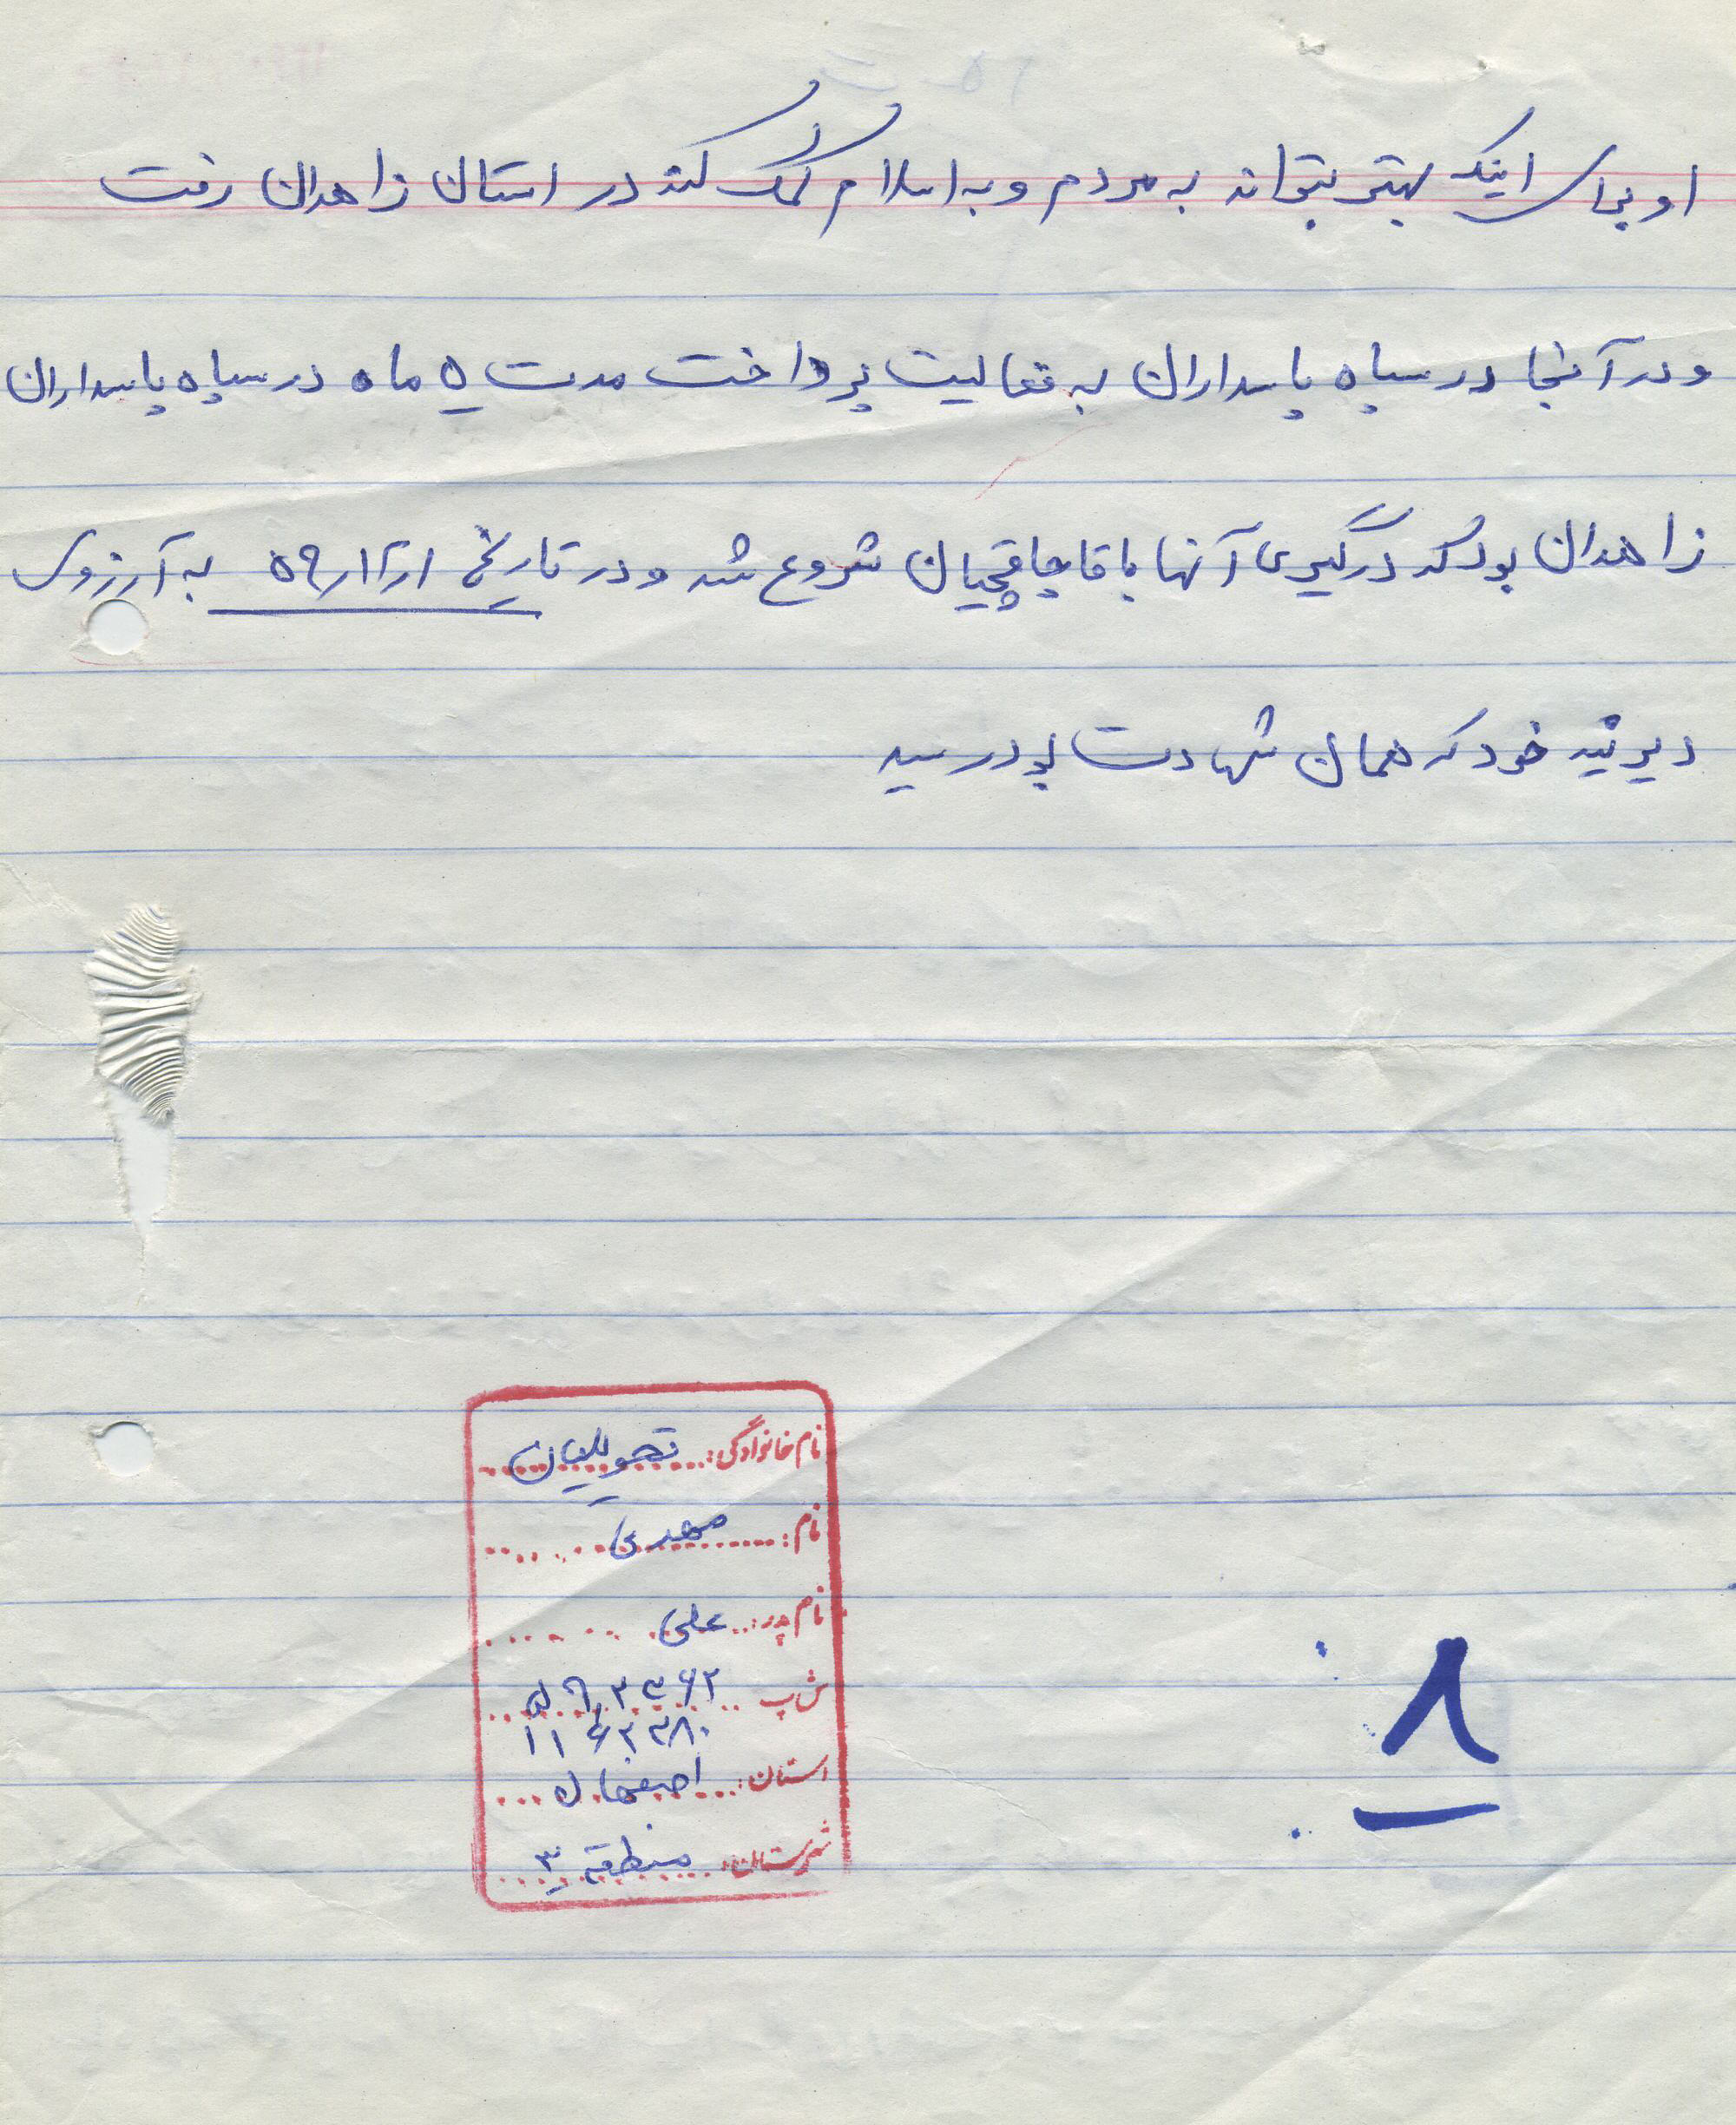 او برای اینکه بهتر بتواند به مردم و به اسلام کمک کند در استان زاهدان رفت
و در آنجا در سپاه پاسداران به فعالیت پرداخت مدت ۵ ماه در سپاه پاسداران
زاهدان بود که درگیری آنها با قاچاقچیان شروع شد و در تاریخ ۵۹/۱۲/۱ به آرزوی
دیرینه خود که همان شهادت بود رسید
نام خانوادگی: تحویلیان
نام: مهدی
نام پدر: علی
ش پ
استان: اصفهان
شهرستان: منطقه ۳
۸